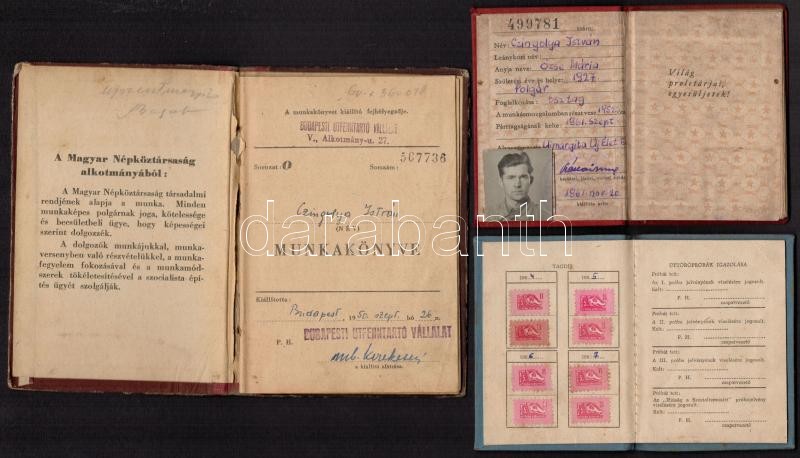 A Magyar Népköztársaság
alkotmányából :
A Magyar Népköztársaság társadalmi
rendjének alapja a munka. Minden
munkaképes polgárnak joga, kötelessége
és becsületbeli ügye, hogy képességei
szerint dolgozzék.
A dolgozók munkájukkal, munka-
versenyben való részvételükkel, a munka-
fegyelem fokozásával és a munkamód-
szerek tökéletesítésével a szocialista épí-
tés ügyét szolgálják.
A munkakönyvet kiállító fejhélyegzője.
BUDAPESTI ÚTFENNTARTÓ VÁLLALAT
V., Alkotmány-u. 27.
Sorozat: 0 Sorszám:
567736
Czingolya István
(NÉV)
MUNKAKÖNYVE
Kiállította:
Budapest, 1950 szept. hó 26 n.
BUDAPESTI ÚTFENNTARTÓ VÁLLALAT
P. H.
a kiállító aláírása.
499781 szám
Név: Czingolya István
Leánykori név:
Anyja neve: Őzse Mária
Születési éve és helye: 1927
Polgár
Foglalkozása:
A munkásmozgalomban részt vesz 195
Párttagságának kelte: 1961. szept
Ujmargita Új Élet
1961. nov. 20.
kiállítás kelte
Világ
proletárjai,
egyesüljetek!
TAGDÍJ
196 4 196 5
196 6 196 7
ÚTTÖRŐPRÓBÁK IGAZOLÁSA
Próbát tett:
Az I. próba jelvényének viselésére jogosult.
Kelt:
P. H.
csapatvezető
Próbát tett:
A II. próba jelvényének viselésére jogosult.
Kelt:
P. H.
csapatvezető
Próbát tett:
A III. próba jelvényének viselésére jogosult.
Kelt:
P. H.
csapatvezető
Próbát tett:
viselésére jogosult.
Kelt:
P. H.
csapatvezető
darabanth